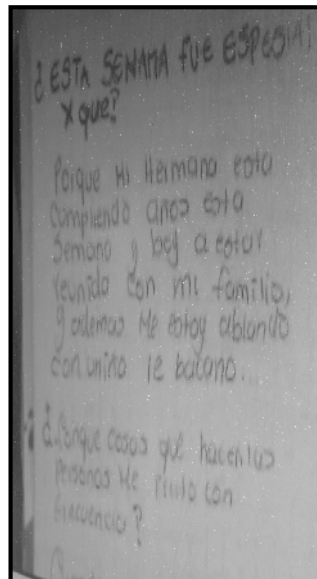 ¿ESTA SEMANA FUE ESPESIAL
X que?
Porque Mi Hermano esta
Compliendo años esta
Semana y boy a estar
reunida con mi familia,
y ademas Me estoy ablando
con unino re bacano...
¿Porque cosas que hacen las
Personas Me rindo con
Frecuencia?